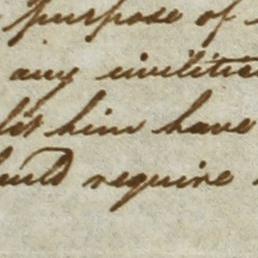 purpose of
any civilities
let him have
should require